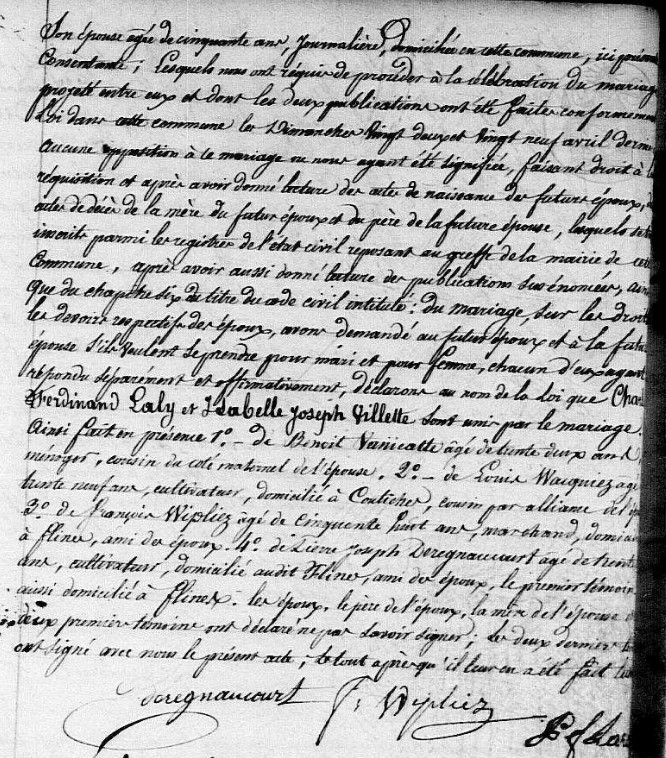 Son épouse agée de cinquante ans, Journalière, domiciliée en cette commune, ici présen
Consentante ; Lesquels nous ont réquis de procéder à la célébration du mariage
projetté entre eux et dont les deux publications ont été faites conformément
Loi dans cette commune les Dimanches Vingt deux et Vingt neuf avril dern
aucune opposition à le mariage ou nous ayant été signifiée, faisant droit à l
réquisition et après avoir donné lecture des actes de naissance des futurs époux,
actes de décès de la mère du futur époux et du père de la future épouse, lesquels
inscrits parmi les registres de l'état civil reposant au greffe de la mairie de cette
Commune, après avoir aussi donné lecture des publications sus énoncées, ains
que du chapitre six du titre du code civil intitulé : du mariage, sur les droits
les devoirs respectifs des époux, avons demandé au futur époux et à la futu
épouse s'ils veulent se prendre pour mari et pour femme, chacun d'eux ayant
répondu séparément et affirmativement, déclarons au nom de la loi que Char
Ferdinand Laly et Isabelle Joseph Villette sont unis par le mariage.
Ainsi fait en présence 1.° - de Benoit Vanicatte âgé de trente deux ans,
ménager, cousin du coté maternel de l'épouse. 2.° - de Louis Wacquiez agé
trente neuf ans, cultivateur, domicilié à Coutiches, cousin par alliance de l'ép
3.° de françois Wipliez âgé de cinquante huit ans, marchand, domici
à flines, ami des époux. 4.° de Pierre Joseph Deregnaucourt agé de trente
ans, cultivateur, domicilié audit flines, ami des époux, le premier témoin
aussi domicilié à flines. les époux, le père de l'époux, la mère de l'épouse
deux premiers témoins ont déclaré ne pas savoir signer : les deux derniers t
ont signé avec nous le présent acte ; le tout après qu'il leur en a été fait lec
deregnaucourt f. Wipliez